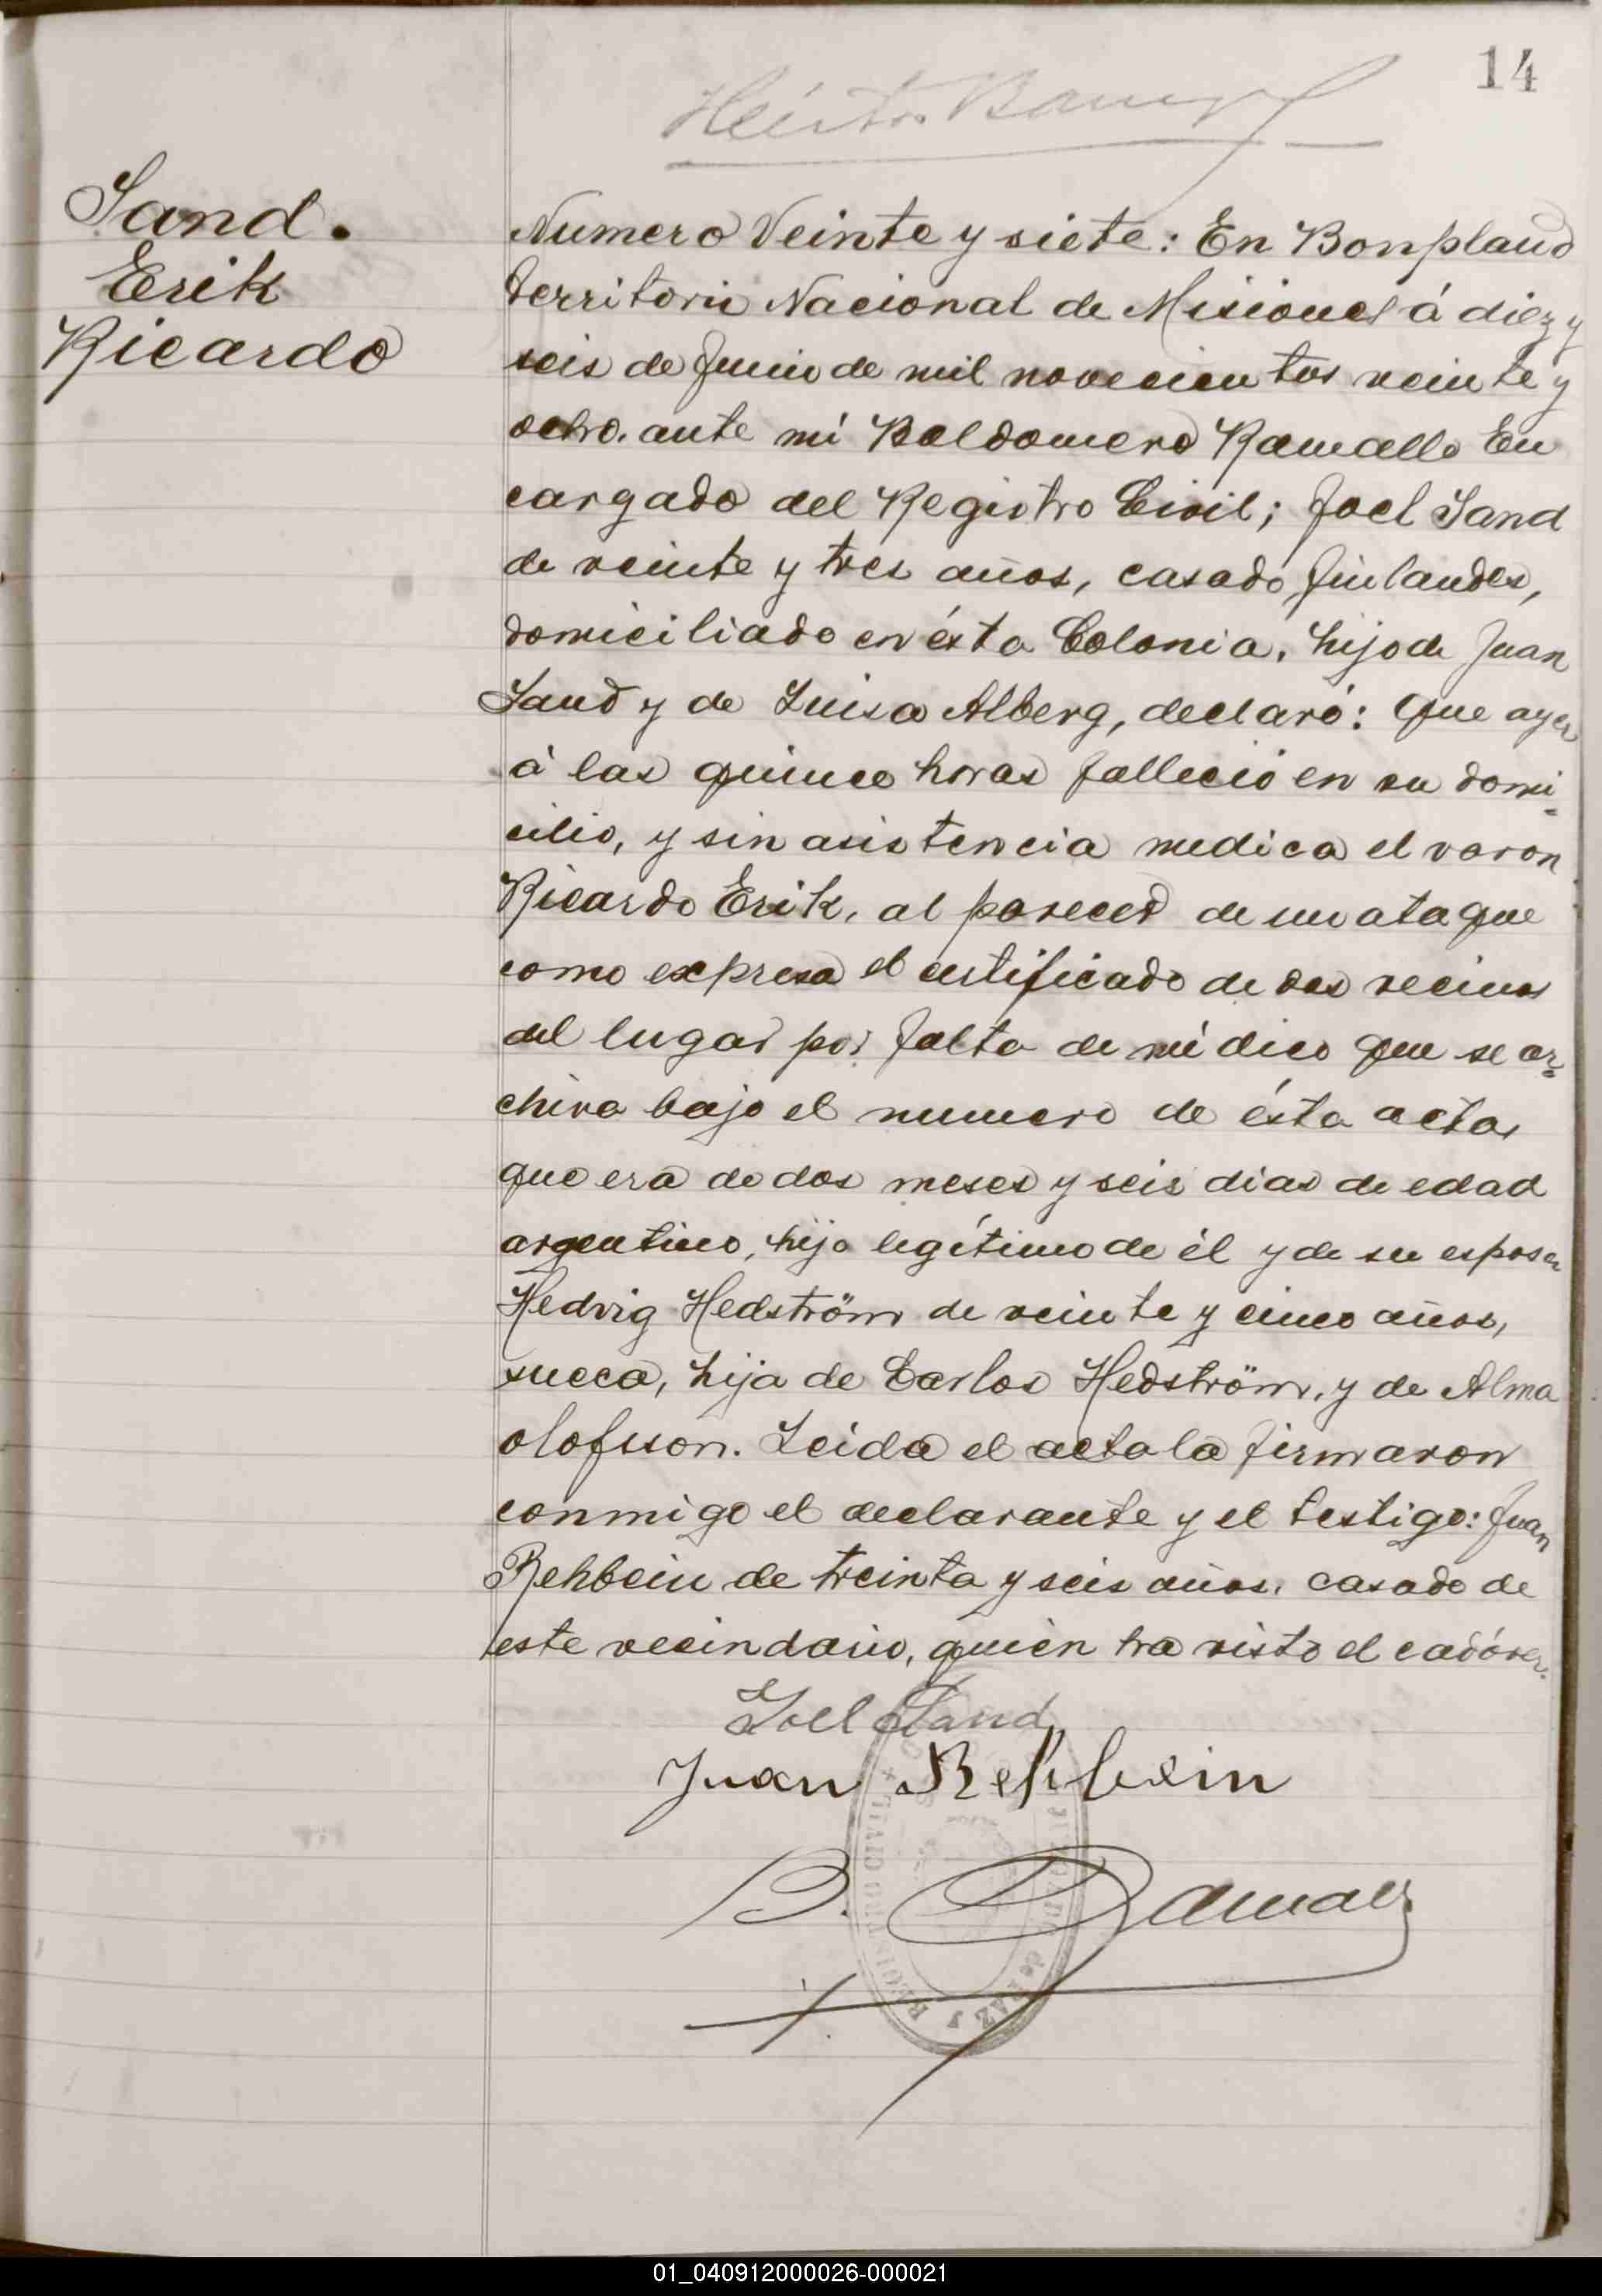 14
Sand.
Erik
Ricardo
Numero Veinte y siete: En Bonpland
Territorio Nacional de Misiones á diez y
seis de Junio de mil novecientos veinte y
ocho. ante mi Baldomero Ramallo En
cargado del Registro Civil; Joel Sand
de veinte y tres años, casado, finlandes,
domiciliado en ésta Colonia, hijo de Juan
Sand y de Luisa Alberg, declaró: Que ayer
á las quince horas falleció en su domi-
cilio, y sin asistencia medica el varon
Ricardo Erik, al parecer de un ataque
como expresa el certificado de dos vecinos
del lugar por falta de médico que se ar-
chiva bajo el numero de ésta acta,
que era de dos meses y seis dias de edad
argentino, hijo legítimo de él y de su esposa
Hedvig Hedström de veinte y cinco años,
sueca, hija de Carlos Hedström, y de Alma
olofsson. Leida el acta la firmaron
conmigo el declarante y el testigo: Juan
Rehbein de treinta y seis años, casado de
este vecindario, quién ha visto el cadáver.
Joel Sand
Juan Rehbein
B. Ramallo
de PAZ y REGISTRO CIVIL
01_040912000026-000021